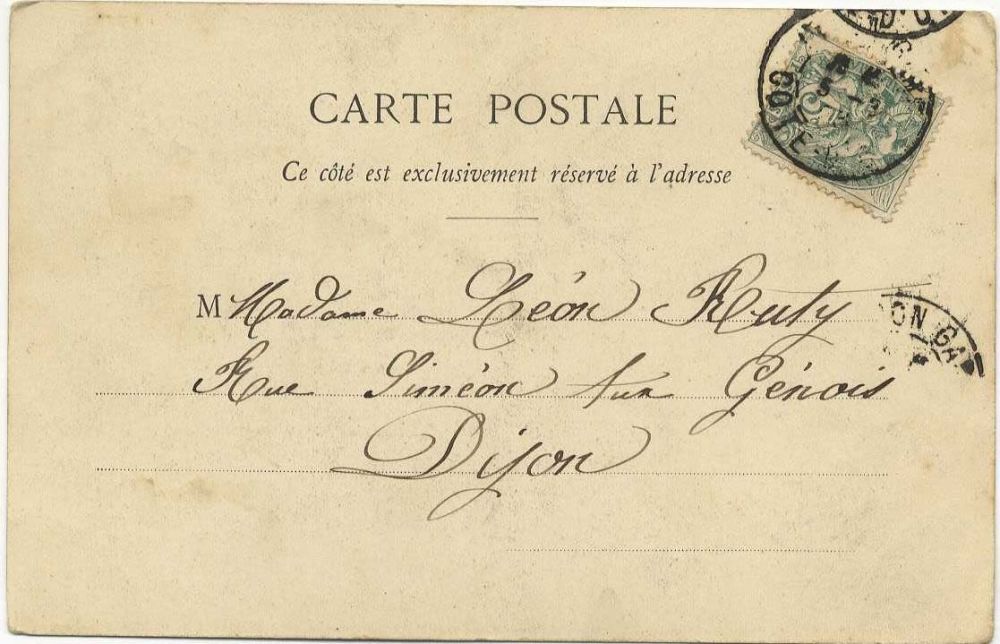 CARTE POSTALE
Ce côté est exclusivement réservé à l'adresse
M Madame Léon Ruty
Rue Siméon aux Génois
Dijon
5
ON GA